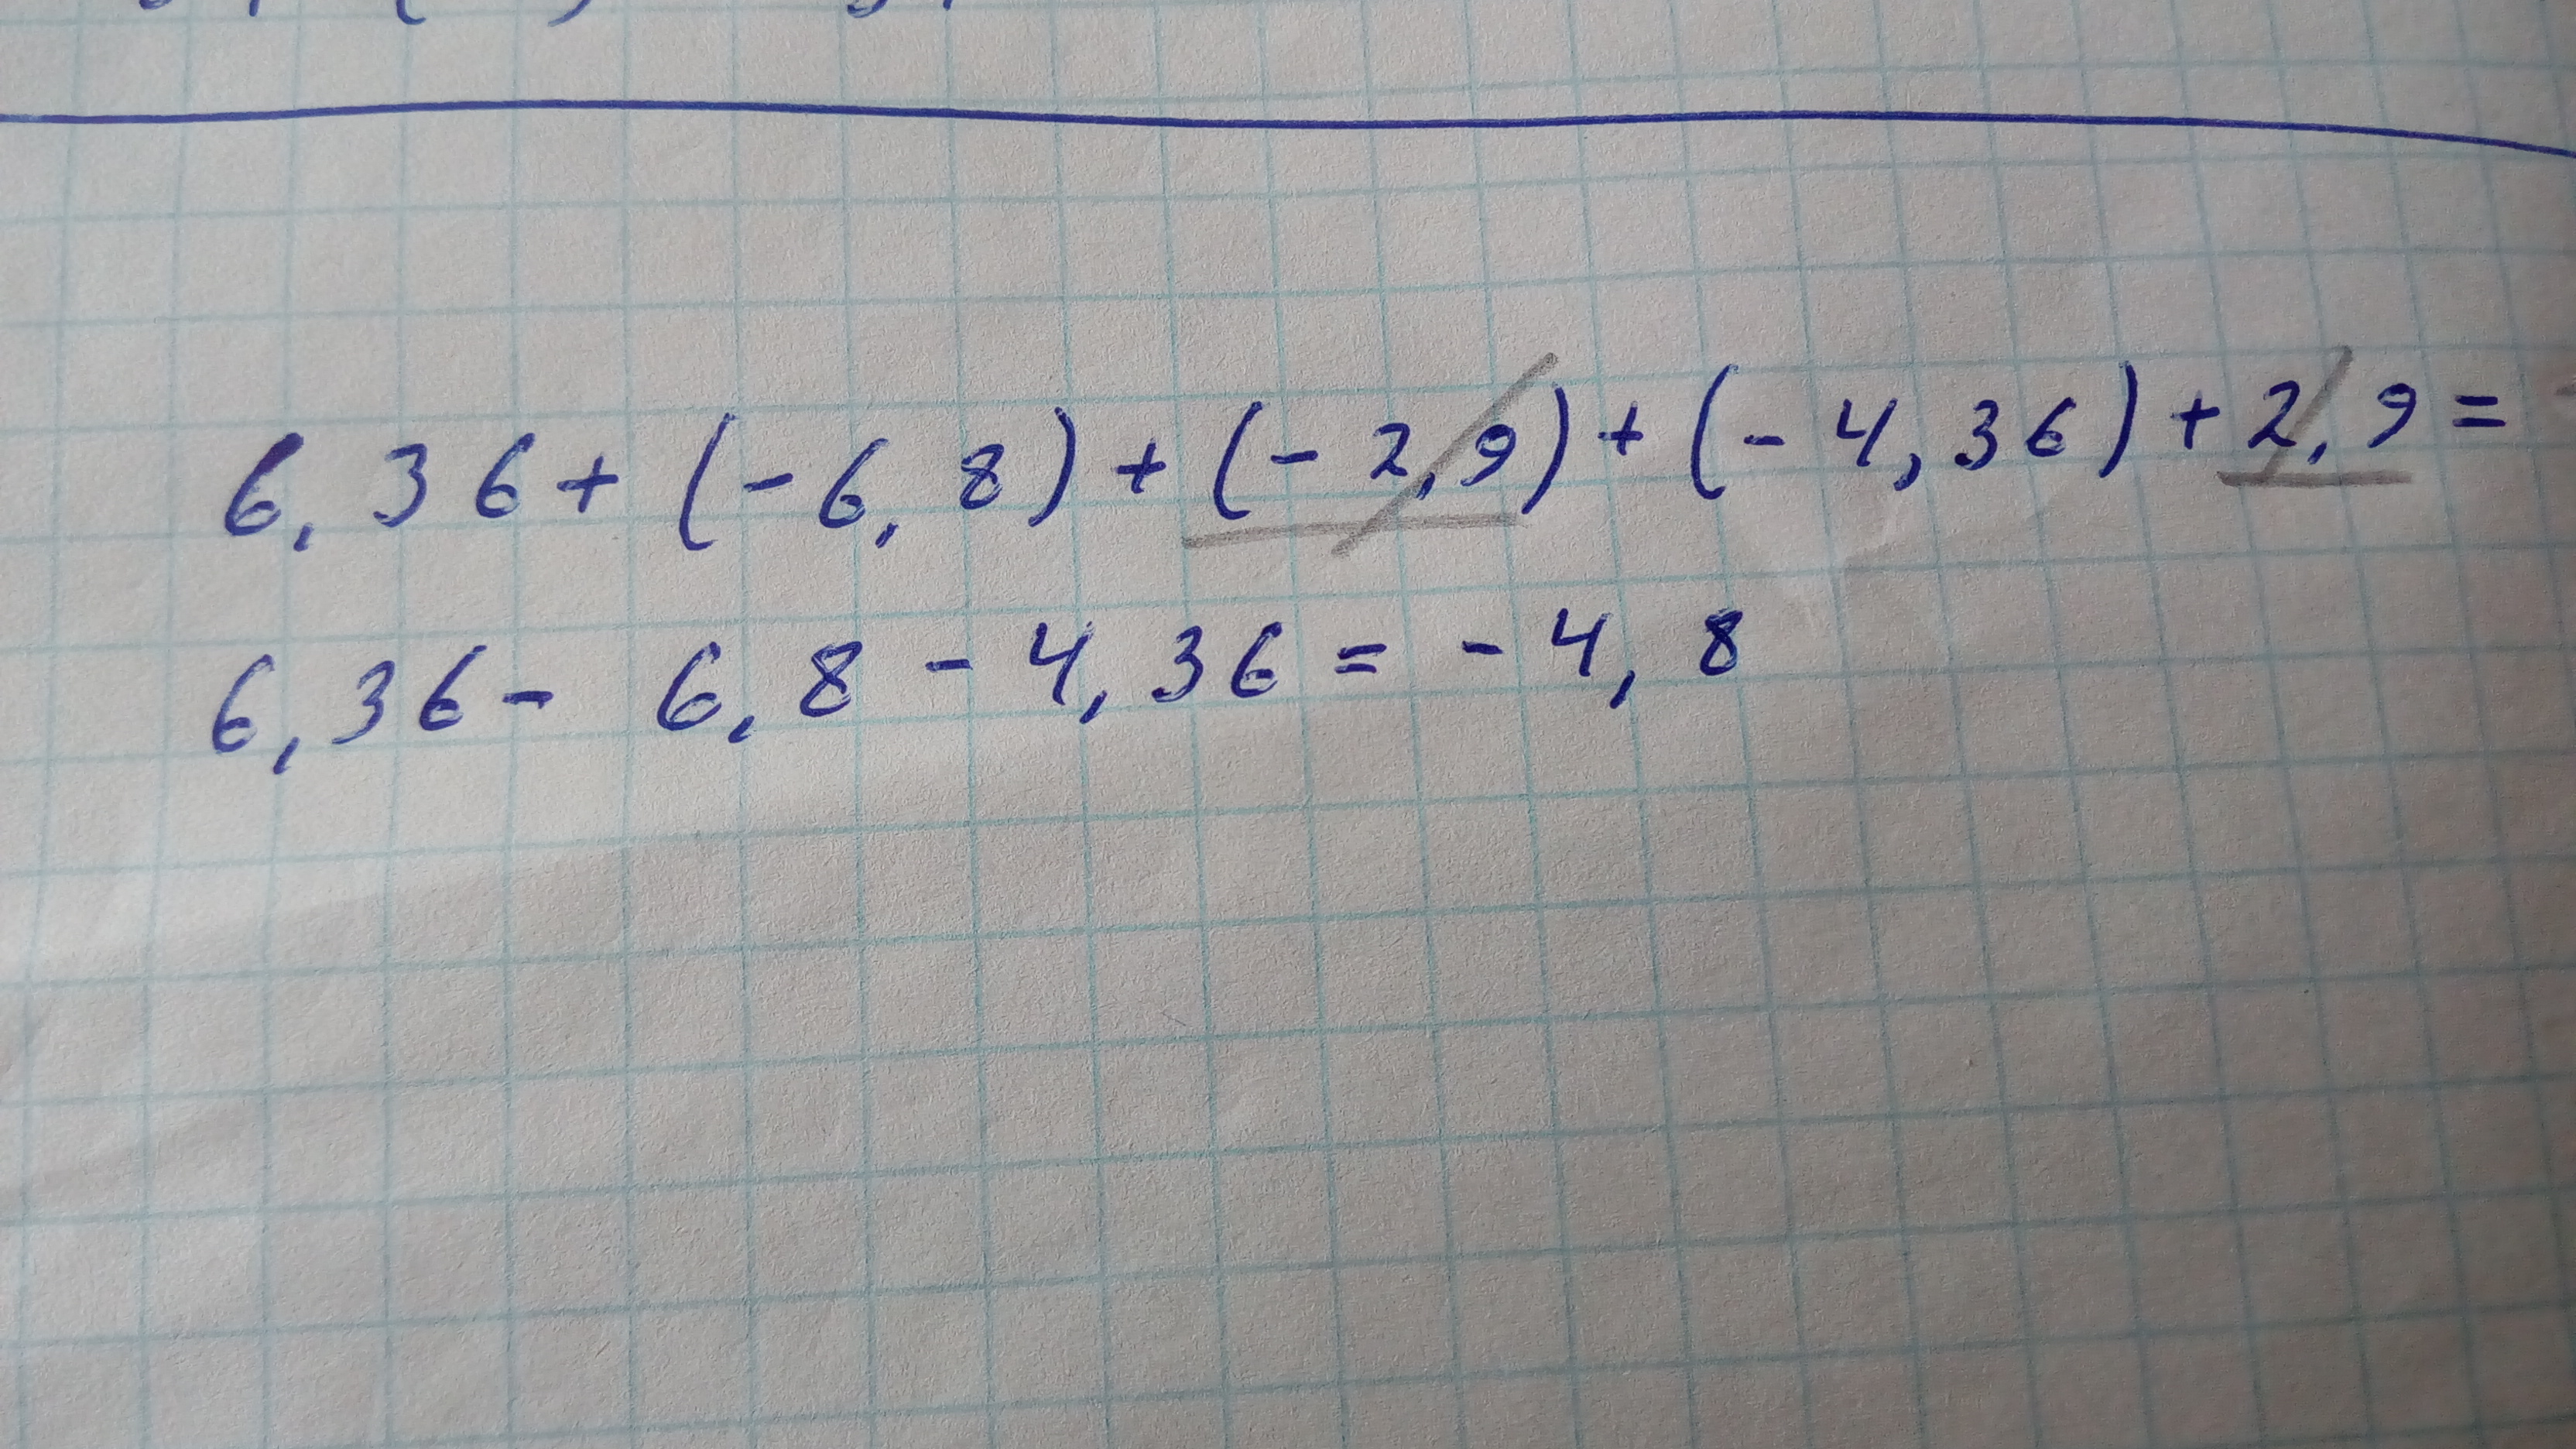 6,36+(-6,8)+(-2,9)+(-4,36)+2,9=
6,36-6,8-4,36=-4,8